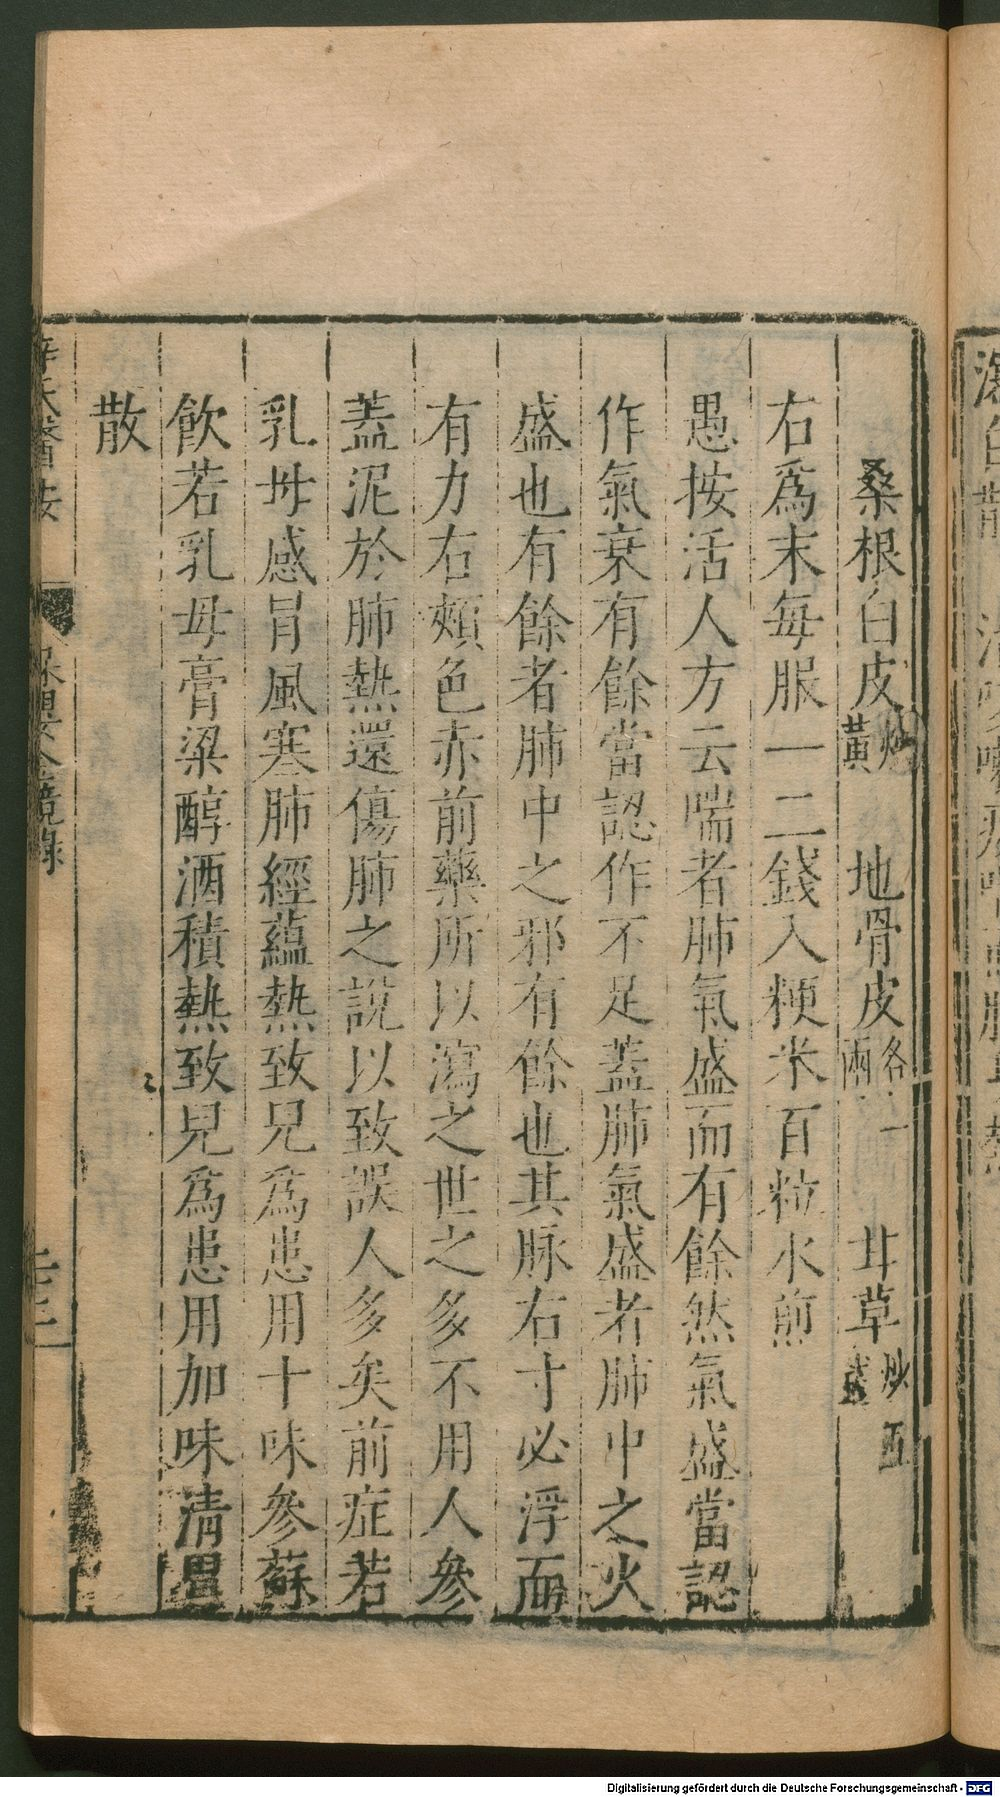 桑根白皮炒黃　地骨皮各一兩　甘草炒五錢
右為末每服一二錢入粳米百粒水煎
愚按活人方云喘者肺氣盛而有餘然氣盛當認
作氣衰有餘當認作不足蓋肺氣盛者肺中之火
盛也有餘者肺中之邪有餘也其脉右寸必浮而
有力右頰色赤前藥所以瀉之世之多不用人參
蓋泥於肺熱還傷肺之說以致誤人多矣前症若
乳母感冒風寒肺經蘊熱致兒為患用十味參蘇
飲若乳母膏粱醇酒積熱致兒為患用加味清胃
散
薛氏醫按　保嬰金鏡錄
Digitalisierung gefördert durch die Deutsche Forschungsgemeinschaft - DFG